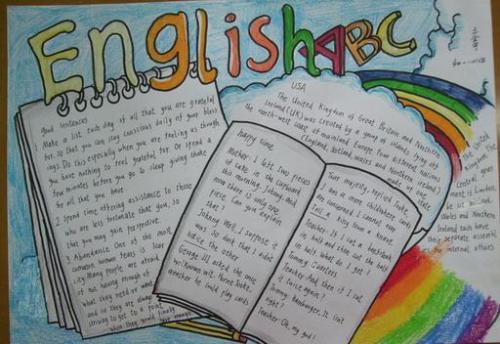 English ABC
good sentences
1 Make a list each day of all that you are grateful
for, so that you can stay conscious daily of your bless
ings. Do this especially when you are feeling as though
you have nothing to feel grateful for. Or spend a
few minutes before you go to sleep giving thanks
for all that you have
2. Spend time offering assistance to those
who are less fortunate than you, so
that you may gain perspective.
3. Abundance One of the most
common human fears is scar
city. Many people are afraid
of not having enough of
what they need or want,
and so they are always
striving to get to a point
when they would finally
have enough
happy time
Mother: I left two pieces
of cake in the cupboard
this morning, Johnny, and
now there is only one
piece. Can you explain
that?
Johnny: Well, I suppose it
was so dark that I didn't
notice the other
George III asked the
whether he could play cards
Your majesty, replied Tooke,
I am a more
am concerned I cannot even
tell a king from a knave
Teacher: If I cut a beefsteak
in half and then cut the half
in half, what do I get?
Tommy:
Teacher: And then if I cut
it twice again?
Tommy: hamburger. It isn't
right?
Teacher: Oh, my god!
USA
The United Kingdom of Great Britain and Northern
Ireland (UK) was created by a group of islands lying off
the north-west coast of mainland Europe. Four different nations
(England, Scotland, Wales and Northern Ireland)
made up the state.
The United
central
ment is London
Wales and Northern
Ireland each have
their separate